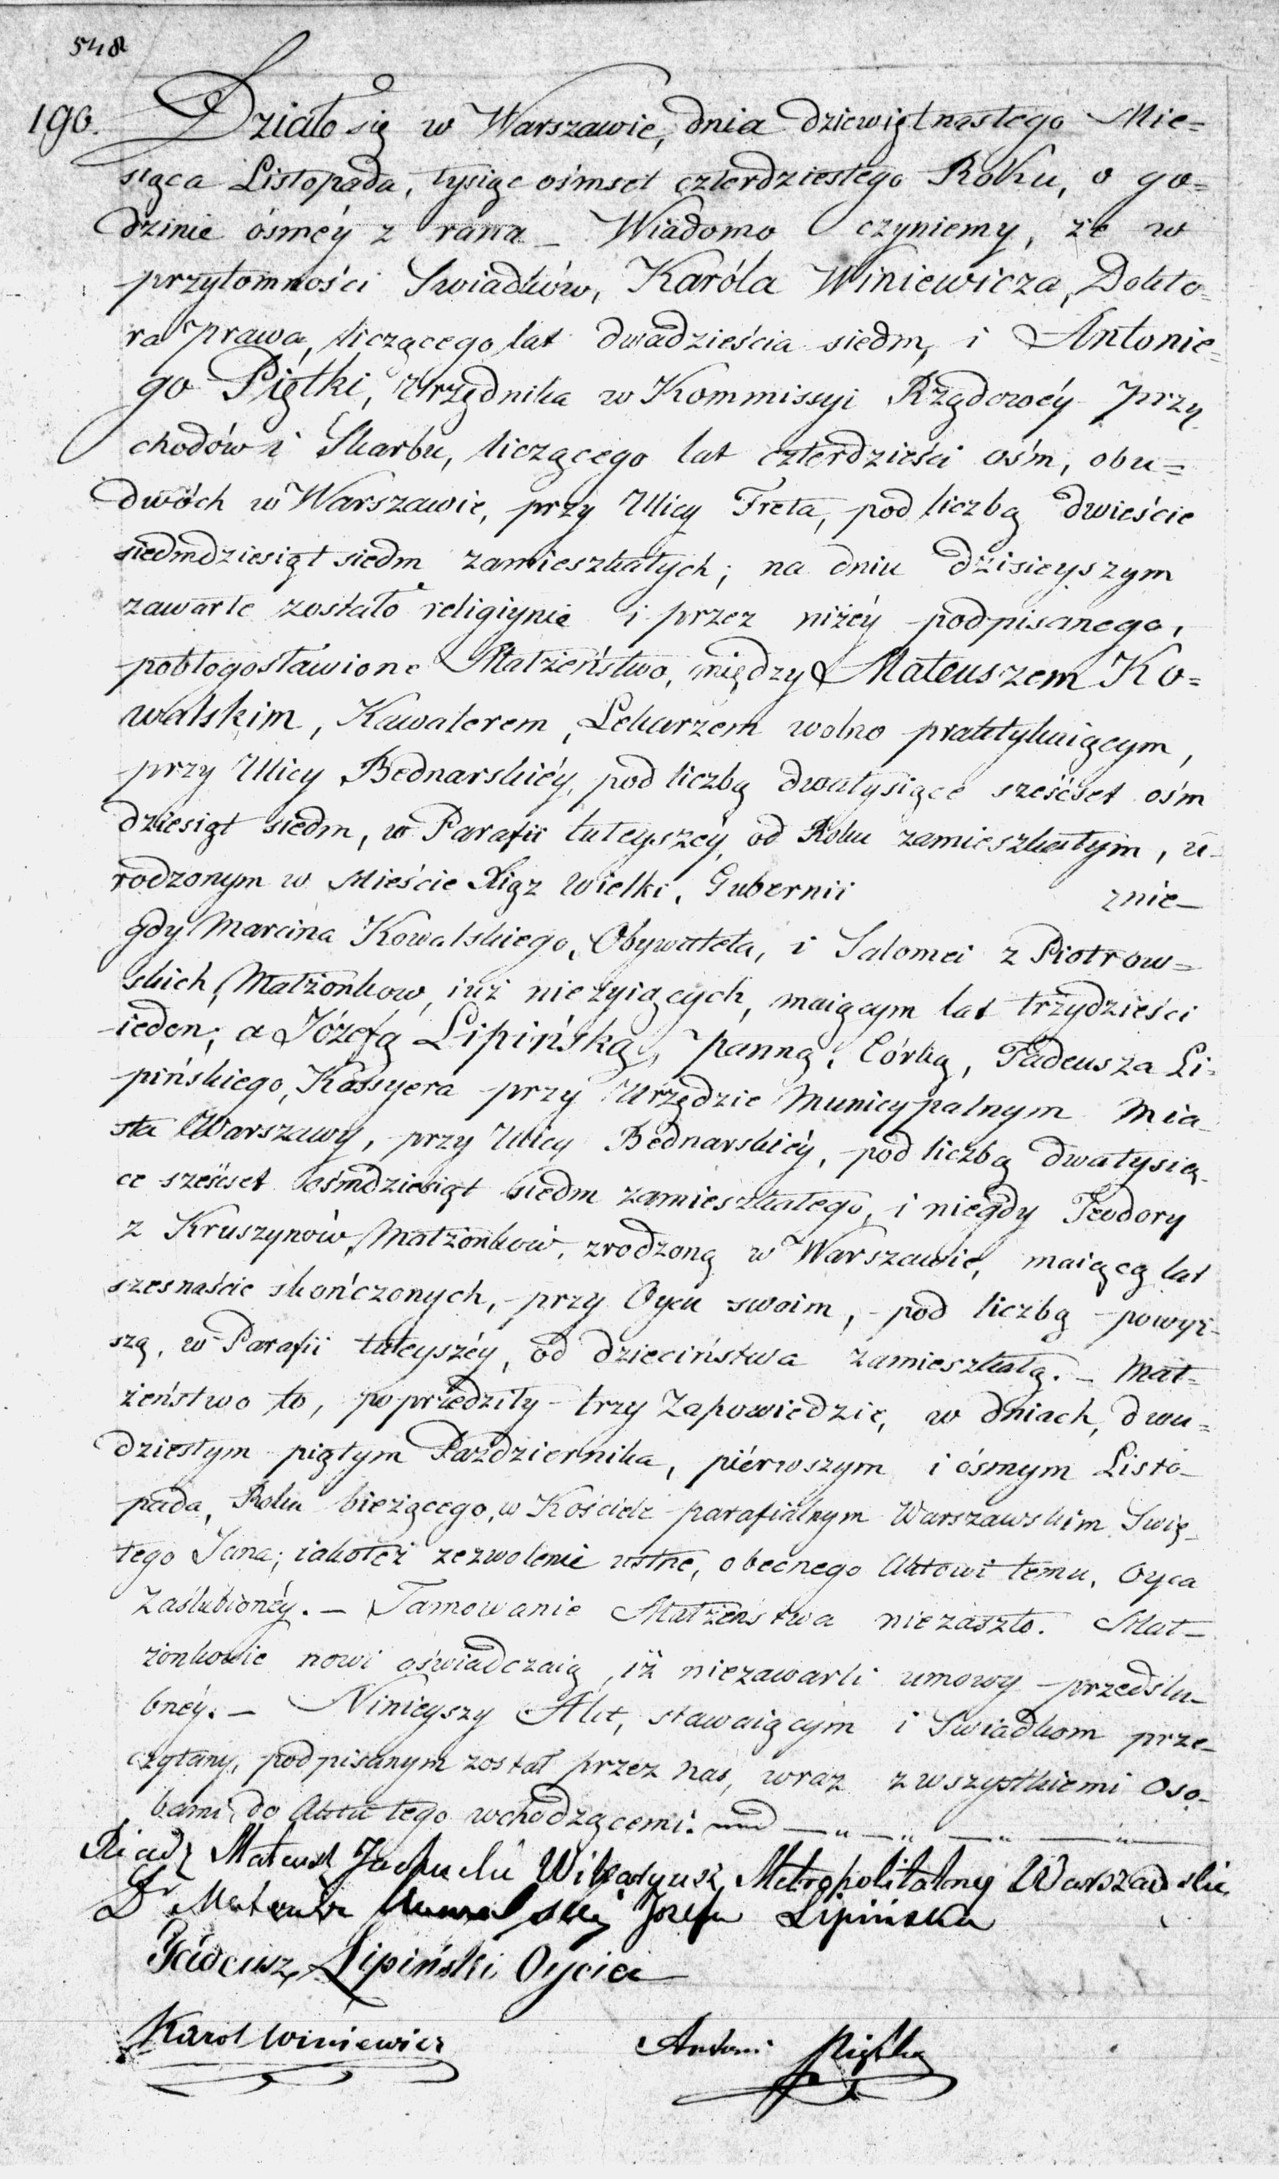 548
190. Działo się w Warszawie, dnia dziewiętnastego Mie=
siąca Listopada, tysiąc ośmset czterdziestego Roku, o go=
dzinie ósméy z rana _ Wiadomo czyniemy, że w
przytomności Swiadków, Karóla Winiewicza, Dokto=
ra prawa, liczącego lat dwadzieścia siedm, i Antonie=
go Piętki, Urzędnika w Kommissyi Rządowéy Przy
chodów i Skarbu, liczącego lat czterdzieści ośm, obu=
dwóch w Warszawie, przy Ulicy Freta, pod liczbą dwieście
siedmdziesiąt siedm zamieszkałych; na dniu dzisieyszym
zawarte zostało religiynie i przez niżéy podpisanego,
pobłogosławione Małżeństwo, między Mateuszem Ko=
walskim, Kawalerem, Lekarzem wolno praktykuiącym,
przy Ulicy Bednarskiéy, pod liczbą dwatysiące sześćset ośm
dziesiąt siedm, w Parafii tuteyszéy, od Roku zamieszkałym, u-
rodzonym w Mieście Xiąz Wielki, Gubernii znie-
gdy Marcina Kowalskiego, Obywatela, i Salomei z Piotrow=
skich, Małżonków, iuż nieżyiących, maiącym lat trzydzieści
ieden; a Józefą Lipińską, Panną, Córką, Tadeusza Li=
pińskiego, Kassyera przy Urzędzie Municypalnym Mia
sta Warszawy, przy Ulicy Bednarskiéy, pod liczbą dwatysią-
ce sześćset ośmdziesiąt siedm zamieszkałego, i niegdy Teodory
z Kruszynów, Małżonków, zrodzoną w Warszawie, maiącą lat
szesnaście skończonych, przy Oycu swoim, pod liczbą powyż-
szą, w Parafii tuteyszéy, od dzieciństwa zamieszkałą. _ Mał=
żeństwo to, poprzedziły trzy Zapowiedzie, w dniach, dwu=
dziestym piątym Października, piérwszym i ósmym Listo-
pada, Roku bieżącego, w Kościele parafialnym Warszawskim Swię-
tego Jana; iakoteż zezwolenie ustne, obecnego Aktowi temu, Oyca
Zaślubionéy. _ Tamowanie Małżeństwa niezaszło. Mał-
żonkowie nowi oświadczaią, iż niezawarli umowy przedślu-
bnéy. _ Ninieyszy Akt, stawaiącym i Swiadkom prze-
czytany, podpisanym został przez nas, wraz z wszystkiemi oso-
bami, do Aktu tego wchodzącemi.
Xiądz Mateusz Wikaryusz Metropolitalny Warszawski
Dr Mateusz Kowalski Józefa Lipińska
Tadeusz Lipiński Oyciec
Karol Winiewicz
Antoni Piętka